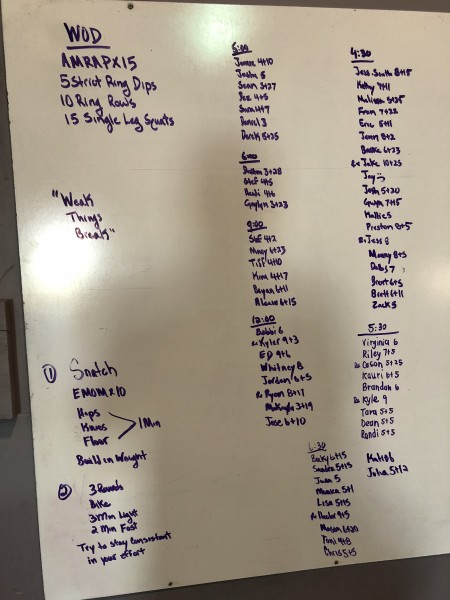 WOD
AMRAP X 15
5 Strict Ring Dips
10 Ring Rows
15 Single Leg Squats
"Weak
Things
Break"
① Snatch
EMOM x 10
Hips
Knees
Floor
1 Min
Build in Weight
② 3 Rounds
Bike
3 Min Light
2 Min Fast
Try to stay consistent
in your effort
5:00
4+10
5
Sean 3+27
4+5
4+7
Daniel 3
Derek 5+25
6:00
3+28
4+5
Heidi 4+6
3+23
9:00
Stef 4+2
6+23
Tiff 4+10
4+17
Bryan 6+11
6+15
12:00
Bobbi 6
Rx Kyler 9+3
ED 9+6
Whitney 8
Jordan 6+5
Rx Ryan 8+11
3+19
Jose 6+10
4:30
Jess
Kathy 7+11
Melissa
Fran 7+23
Eric 5+11
8+2
6+23
Rx Jake 10+25
Jay
Josh 5+20
7+15
Hollie 5
Preston 8+5
Rx Jess 8
8+5
7
Brent 6+5
Brett 6+11
Zack 5
5:30
Virginia 6
Riley 7+5
Rx Cason 5+25
Kauri 6+5
Brandon 6
Rx Kyle 9
Tara 5+5
Dean 5+5
Randi 5+5
Katie 6
Julia 5+12
6:30
Becky 6+15
Sandra 5+15
Juan 5
Monica 5+1
Lisa 5+15
Rx Hector 9+5
Mason 6+20
Toni 4+8
Chris 5+5